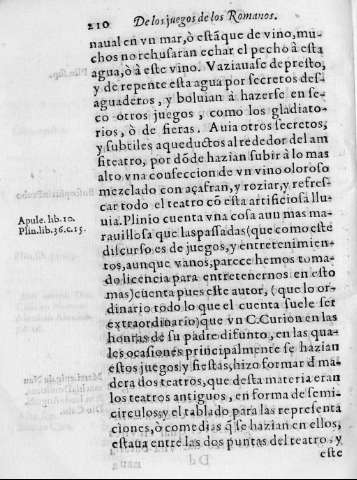 210 De los juegos de los Romanos.
naual en vn mar, ò estãque de vino, mu-
chos no rehusaran echar el pecho à esta
agua, ò à este vino. Vaziauase de presto,
y de repente esta agua por secretos des-
aguaderos, y boluian à hazerse en se-
co otros juegos, como los gladiato-
rios, ò de fieras. Auia otros secretos,
y subtiles aqueductos al rededor del am
fiteatro, por dõde hazian subir à lo mas
alto vna confeccion de vn vino oloroso
mezclado con açafran, y roziar, y refres-
car todo el teatro cõ esta artificiosa llu-
uia. Plinio cuenta vna cosa aun mas ma-
rauillosa que las passadas (que como este
discurso es de juegos, y entretenimien-
tos, aunque vanos, parece hemos toma-
do licencia para entretenernos en esto
mas) cuẽta pues este autor, (que lo or-
dinario todo lo que el cuenta suele ser
extraordinario) que vn C. Curion en las
honras de su padre difunto, en las qua-
les ocasiones principalmente se hazian
estos juegos y fiestas, hizo formar d ma-
dera dos teatros, que desta materia eran
los teatros antiguos, en forma de semi-
circulos, y el tablado para las representa
ciones, ò comedias q̃ se hazian en ellos,
estaua entre las dos puntas del teatro, y
este
Apule. lib. 10.
Plin. lib. 36. c. 15.